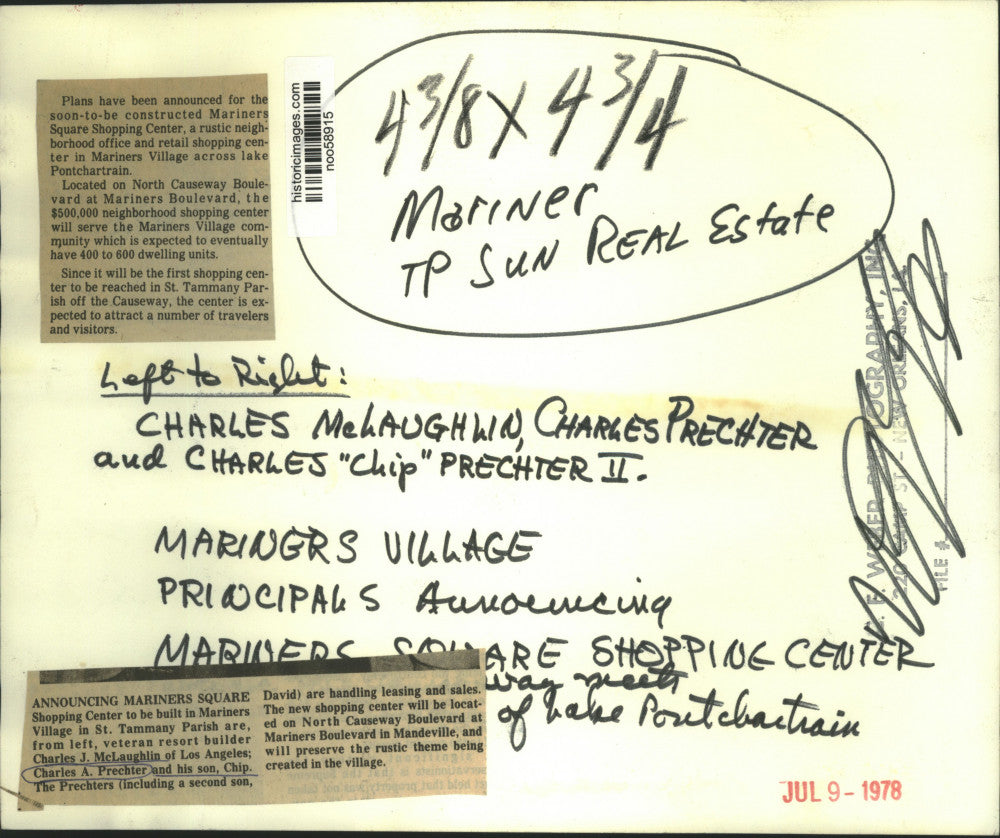 Plans have been announced for the
soon-to-be constructed Mariners
Square Shopping Center, a rustic neigh-
borhood office and retail shopping cen-
ter in Mariners Village across lake
Pontchartrain.
Located on North Causeway Boule-
vard at Mariners Boulevard, the
$500,000 neighborhood shopping center
will serve the Mariners Village com-
munity which is expected to eventually
have 400 to 600 dwelling units.
Since it will be the first shopping cen-
ter to be reached in St. Tammany Par-
ish off the Causeway, the center is ex-
pected to attract a number of travelers
and visitors.
historicimages.com
noo58915
4 3/8 X 4 3/4
Mariner
TP SUN REAL EState
Left to Right:
CHARLES McLAUGHLIN, CHARLES PRECHTER
and CHARLES "Chip" PRECHTER II.
MARINERS VILLAGE
PRINCIPALS Announcing
MARINERS SQUARE SHOPPING CENTER
way meets
of Lake Pontchartrain
ANNOUNCING MARINERS SQUARE
Shopping Center to be built in Mariners
Village in St. Tammany Parish are,
from left, veteran resort builder
Charles J. McLaughlin of Los Angeles;
Charles A. Prechter and his son, Chip.
The Prechters (including a second son,
David) are handling leasing and sales.
The new shopping center will be locat-
ed on North Causeway Boulevard at
Mariners Boulevard in Mandeville, and
will preserve the rustic theme being
created in the village.
CAMP ST. - NEW ORLEANS, LA
FILE #
JUL 9 - 1978